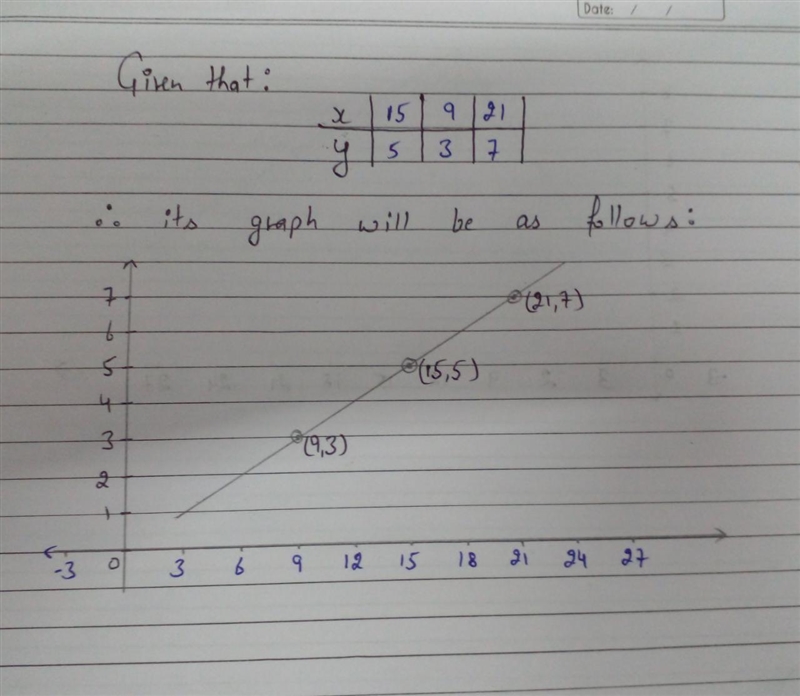 Date: / /
Given that:
x 15 9 21
y 5 3 7
∴ its graph will be as follows:
7
(21,7)
6
5
(15,5)
4
3
(9,3)
2
1
-3 0 3 6 9 12 15 18 21 24 27